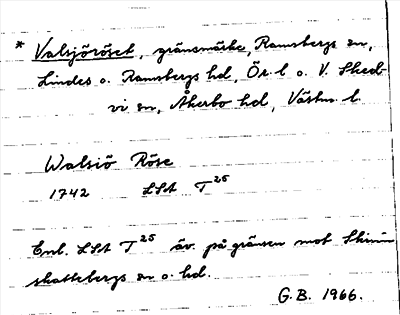 * Valsjöröset, gränsmärke, Ramsbergs sn,
Lindes o. Ramsbergs hd, Ör. l o. V. Sked-
vi sn, Åkerbo hd, Västm. l.
Walsiö Röse
1742 LSA T 25
Enl. LSA T 25 äv. på gränsen mot Skinn-
skattebergs sn o. hd.
G.B. 1966.